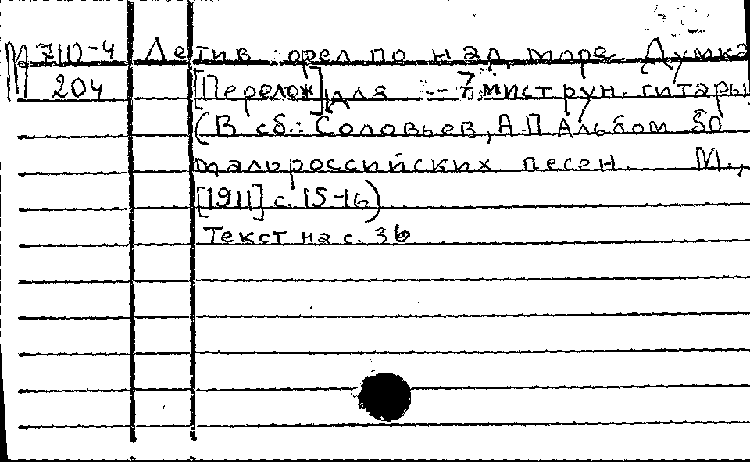 М 710-4 Летив орел по над море Думка
204 [Перелож] для 7миструн. гитары
(В сб.: Соловьев, А П Альбом 50
малороссийских песен. М.,
[1911] с. 15-16)
Текст на с. 36